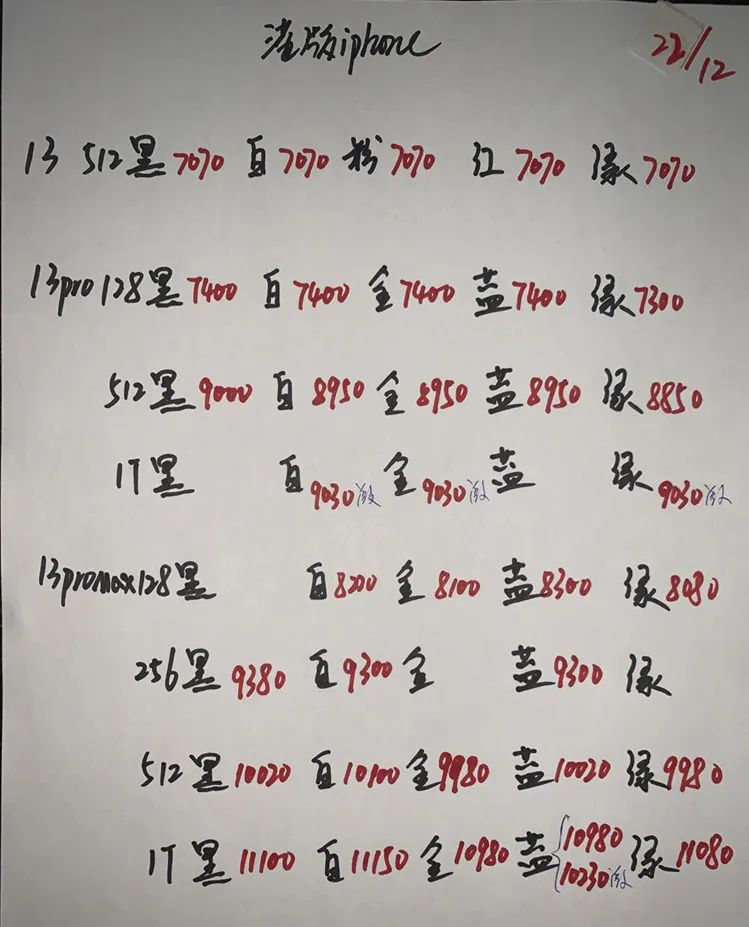 港版iphone
22/12
13 512黑7070 白7070 粉7070 红7070 绿7070
13pro 128黑7400 白7400 金7400 蓝7400 绿7300
512黑9000 白8950 金8950 蓝8950 绿8850
1T黑 白9030激 金9030激 蓝 绿9030激
13promax128黑 白8200 金8100 蓝8300 绿8080
256黑9380 白9300 金 蓝9300 绿
512黑10020 白10100 金9980 蓝10020 绿9980
1T黑11100 白11150 金10980 蓝{10980 10230激 绿11080